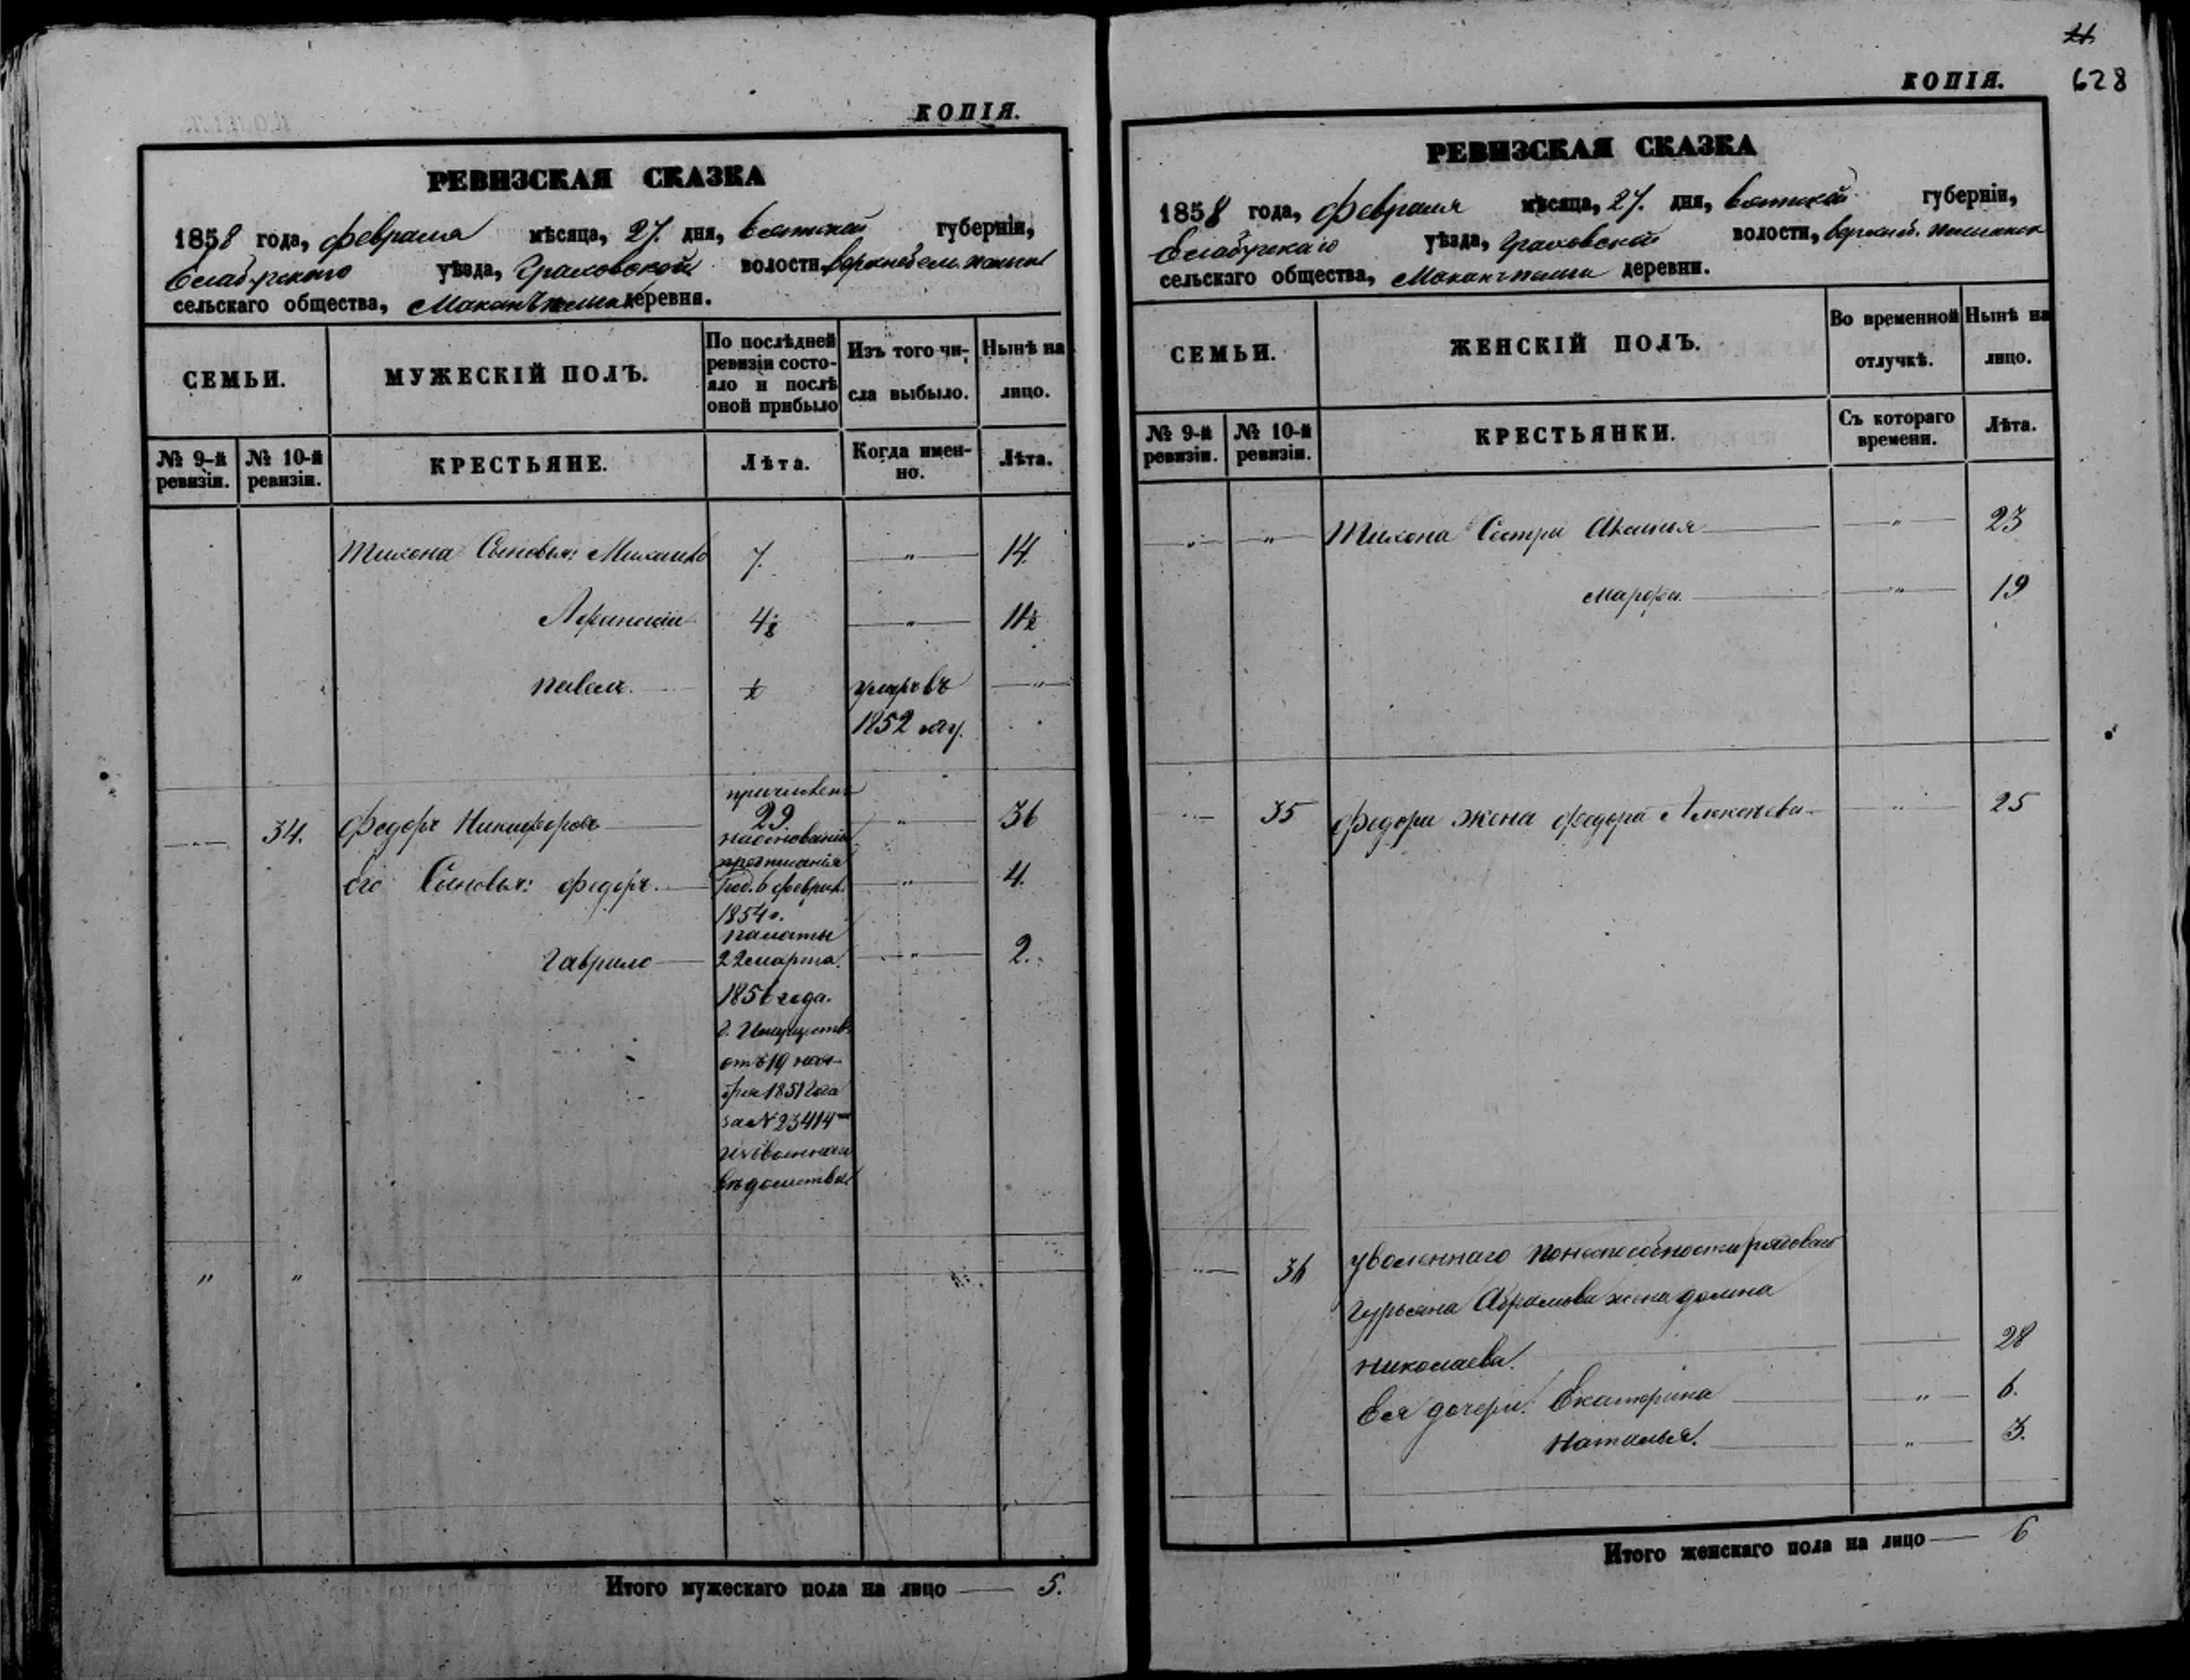 КОПІЯ.
РЕВИЗСКАЯ СКАЗКА
1858 года, февраля мѣсяца, 27. дня, Вятской губерніи,
Елабужского уѣзда, Граховской волости,
сельскаго общества, деревня.
СЕМЬИ.
МУЖЕСКІЙ ПОЛЪ.
По послѣдней ревизіи состо-
яло и послѣ
оной прибыло
Изъ того чи-
сла выбыло.
Нынѣ на
лицо.
№ 9-й ревизіи.
№ 10-й ревизіи.
КРЕСТЬЯНЕ.
Лѣта.
Когда имен-
но.
Лѣта.
Тихона Сыновья: Михаило 7. " 14.
Афанасій 4½ " 11½
Павелъ. ½ умеръ въ "
1852 году.
причисленъ
" 34. Федоръ Никифоровъ 29. " 36
на основаніи
предписанія
его Сыновья: Федоръ. Род. 6 феврал. " 4.
1854 г.
палаты
Гаврило 22 марта. " 2.
1856 года.
г. Имуществъ
отъ 19 ноя-
бря 1851 года
за № 23414
ведомства
" "
Итого мужескаго пола на лицо 5.
21
КОПІЯ. 628
РЕВИЗСКАЯ СКАЗКА
1858 года, февраля мѣсяца, 27. дня, Вятской губерніи,
Елабужскаго уѣзда, Граховской волости,
сельскаго общества, деревни.
СЕМЬИ.
ЖЕНСКІЙ ПОЛЪ.
Во временной
отлучкѣ.
Нынѣ на
лицо.
№ 9-й ревизіи.
№ 10-й ревизіи.
КРЕСТЬЯНКИ.
Съ котораго
времени.
Лѣта.
" " Тихона Сестры " 23
Марфа. " 19
" 35 Федора жена Федора Алексѣева " 25
" 36 уволеннаго по неспособности рядоваго
Абрамова жена домна
Николаева. 28
Ея дочери: Екатерина " 6.
Наталья. " 3.
Итого женскаго пола на лицо 6